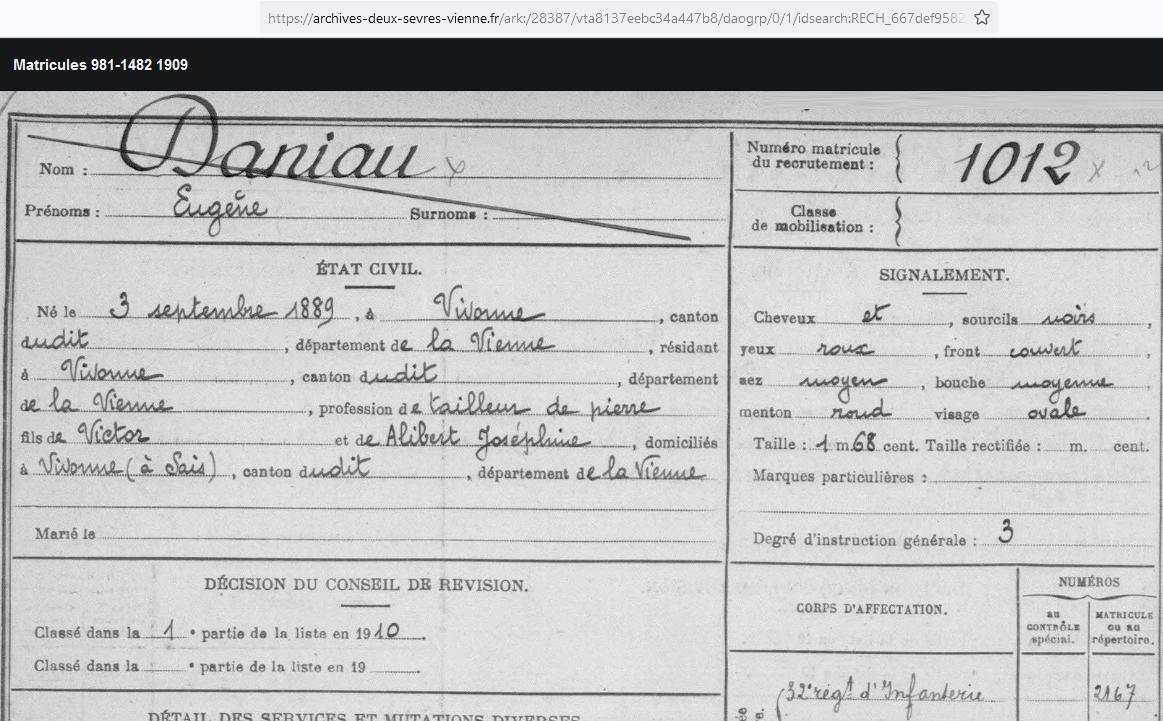 https://archives-deux-sevres-vienne.fr/ark:/28387/vta8137eebc34a447b8/daogrp/0/1/idsearch:RECH_667def9582
Matricules 981-1482 1909
Nom : Daniau x
Prénoms : Eugène Surnoms :
Numéro matricule
du recrutement : 1012 x
Classe
de mobilisation :
ÉTAT CIVIL.
Né le 3 septembre 1889, à Vivonne, canton
dudit, département de la Vienne, résidant
à Vivonne, canton dudit, département
de la Vienne, profession de tailleur de pierre
fils de Victor et de Alibert Joséphine, domiciliés
à Vivonne (à Sais), canton dudit, département de la Vienne
Marié le
SIGNALEMENT.
Cheveux et, sourcils noirs,
yeux roux, front couvert
nez moyen, bouche moyenne
menton rond visage ovale.
Taille : 1 m. 68 cent. Taille rectifiée : m. cent.
Marques particulières :
Degré d'instruction générale : 3
DÉCISION DU CONSEIL DE REVISION.
Classé dans la 1e partie de la liste en 1910.
Classé dans la e partie de la liste en 19
CORPS D'AFFECTATION.
NUMÉROS
au
CONTRÔLE
spécial.
MATRICULE
ou au
répertoire.
32e régt d'Infanterie 2167
DÉTAIL DES SERVICES ET MUTATIONS DIVERSES